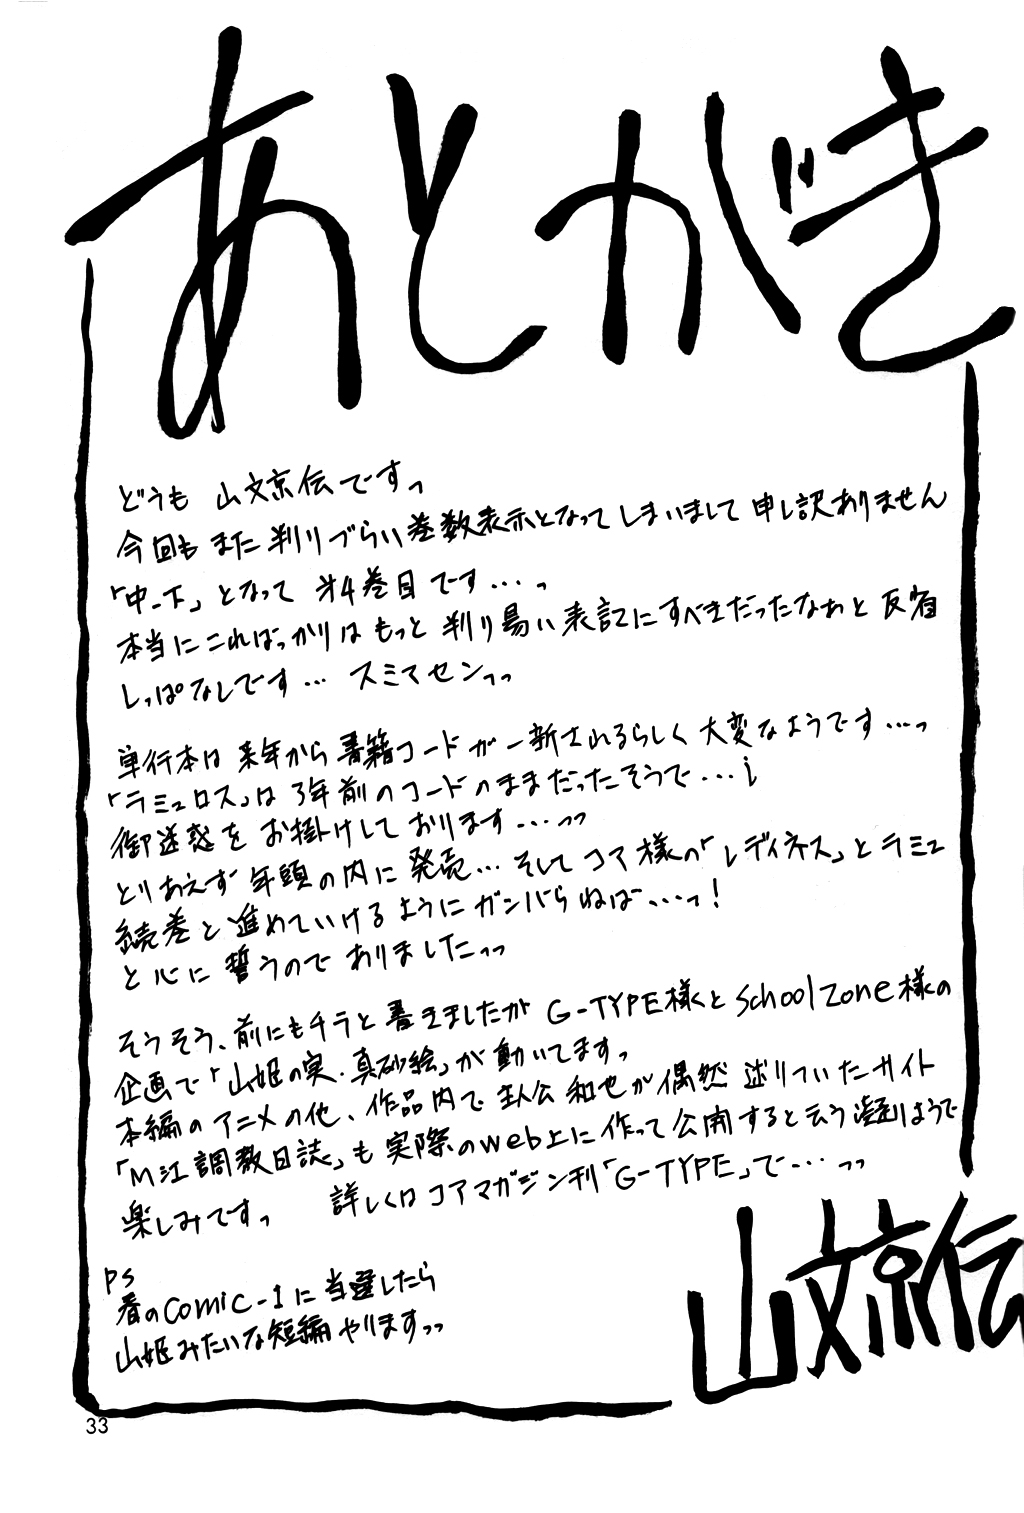 あとがき
どうも 山文京伝ですっ
今回も また 判りづらい巻数表示となってしまいまして 申し訳ありません
「中-下」となって 才4巻目です…っ
本当にこればっかりは もっと 判り易い表記にすべきだったなぁと 反省
しっぱなしです… スミマセンっっ
単行本は 来年から書籍コードが一新されるらしく 大変なようです…っ
「ラミュロス」は 3年前のコードのままだったそうで…;
御迷惑をお掛けしております…っっ
とりあえず 年頭の内に発売… そして コア様の「レディネス」とラミュ
続巻と進めていけるようにガンバらねば…っ!
と心に誓うのでありましたっっ
そうそう、前にもチラと書きましたが G-TYPE様とschoolzone様の
企画で「山姫の実・真砂絵」が動いてますっ
本編のアニメの他、作品内で主人公和也が偶然 辿りついたサイト
「M江調教日誌」も実際のweb上に作って公開すると云う凝りようで
楽しみですっ 詳しくはコアマガジン刊「G-TYPE」で…っっ
PS
春のcomic-1に当選したら
山姫みたいな短編やりますっっ
山文京伝
33